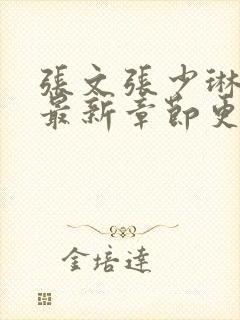 張文張少琳
最新章節更
金培達